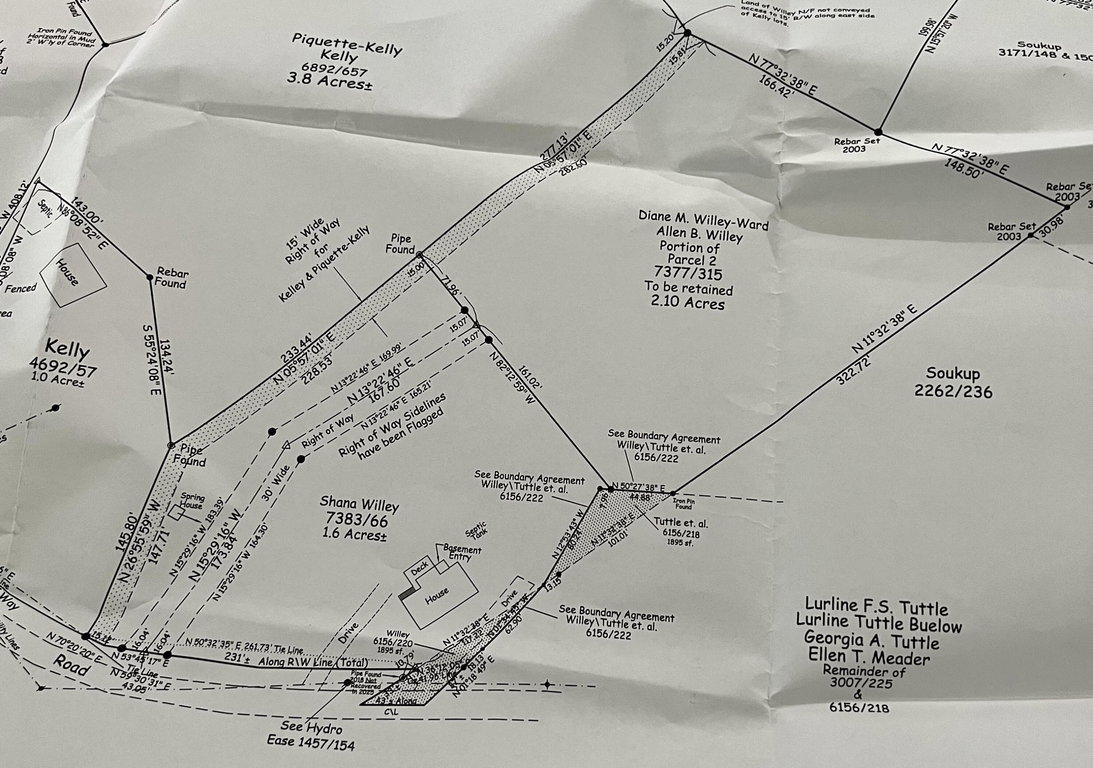 Iron Pin Found
Horizontal in Mud
2' W'ly of Corner
Found
Piquette-Kelly
Kelly
6892/657
3.8 Acres±
Land of Willey N/F not conveyed
access to 15' R/W along east side
of Kelly lots.
15.20'
15.81'
N 77°32'38" E
166.42'
199.98'
Soukup
3171/148 & 150
Rebar Set
2003
N 77°32'38" E
148.50'
Rebar Set
2003
Rebar Set
2003
30.98'
277.13'
N 05°57'01" E
282.60'
W 408.12'
Septic
143.00'
N 36°08'52" E
House
Fenced
Rebar
Found
15' Wide
Right of Way
for
Kelley & Piquette-Kelly
Pipe
Found
15.00'
71.96'
Diane M. Willey-Ward
Allen B. Willey
Portion of
Parcel 2
7377/315
To be retained
2.10 Acres
S 55°24'08" E
134.24'
Kelly
4692/57
1.0 Acre±
233.44'
N 05°57'01" E
228.53'
15.07'
15.07'
N 13°22'46" E 169.99'
N 13°22'46" E
167.60'
N 13°22'46" E 165.21'
161.02'
N 82°12'59" W
N 11°32'38" E
322.72'
Soukup
2262/236
Right of Way
Right of Way Sidelines
have been Flagged
Pipe
Found
Spring
House
30' Wide
See Boundary Agreement
Willey\Tuttle et. al.
6156/222
See Boundary Agreement
Willey\Tuttle et. al.
6156/222
N 50°27'38" E
44.88'
Iron Pin
Found
Tuttle et. al.
6156/218
1895 sf.
N 11°32'38" E
101.01'
N 12°53'43" W
13.15'
145.80'
N 26°55'59" W
147.71'
N 15°29'16" W 183.39'
N 15°29'16" W
173.84'
N 15°29'16" W 164.30'
Shana Willey
7383/66
1.6 Acres±
Septic
Tank
Basement
Entry
Deck
House
Drive
Drive
See Boundary Agreement
Willey\Tuttle et. al.
6156/222
62.90'
Lurline F.S. Tuttle
Lurline Tuttle Buelow
Georgia A. Tuttle
Ellen T. Meader
Remainder of
3007/225
&
6156/218
Way
Road
N 70°20'20" E
16.04'
16.04'
N 53°45'17" E
Tie Line
N 59°50'31" E
43.05'
N 50°32'35" E 261.73' Tie Line
231'± Along R/W Line (Total)
Willey
6156/220
1895 sf.
N 11°32'38" E
10.79'
Pipe Found
2018 Not
Recovered
in 2025
18.13'
N 01°18'49" E
43'± Along
C\L
See Hydro
Ease 1457/154